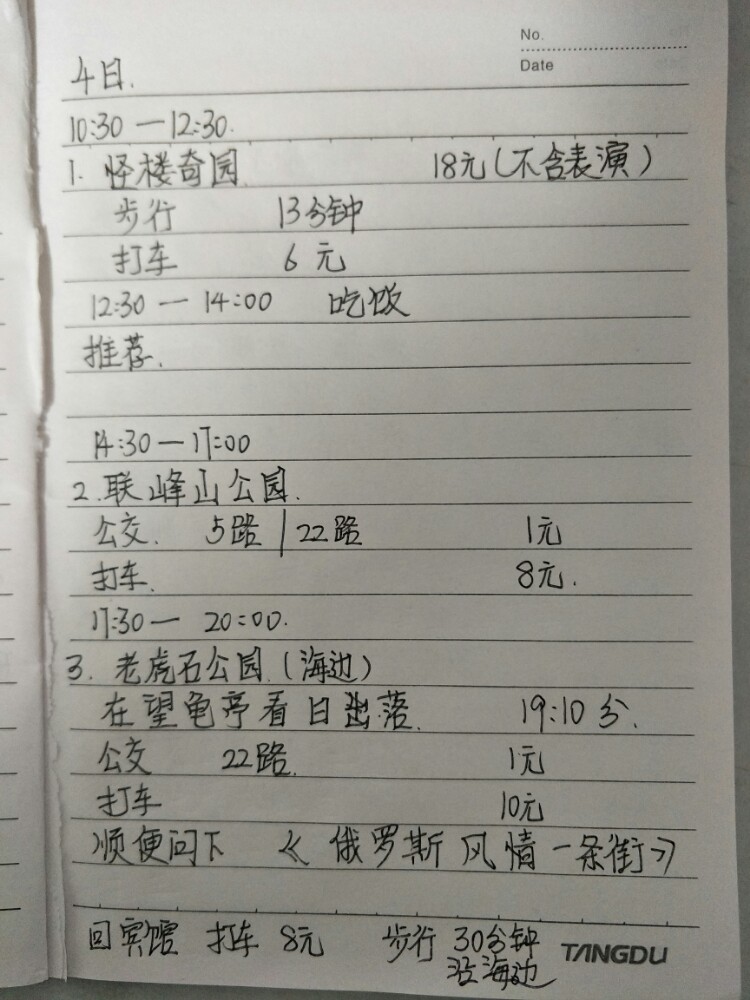 No.
Date
4日.
10:30 — 12:30.
1. 怪楼奇园 18元(不含表演)
步行 13分钟
打车 6 元
12:30 — 14:00 吃饭
推荐.
14:30 — 17:00
2. 联峰山公园.
公交. 5路 / 22路 1元
打车. 8元.
17:30 — 20:00.
3. 老虎石公园 (海边)
在望龟亭看日落. 19:10分.
公交 22路. 1元
打车 10元
顺便问下 《俄罗斯风情一条街》
回宾馆 打车 8元 步行 30分钟
沿海边
TANGDU